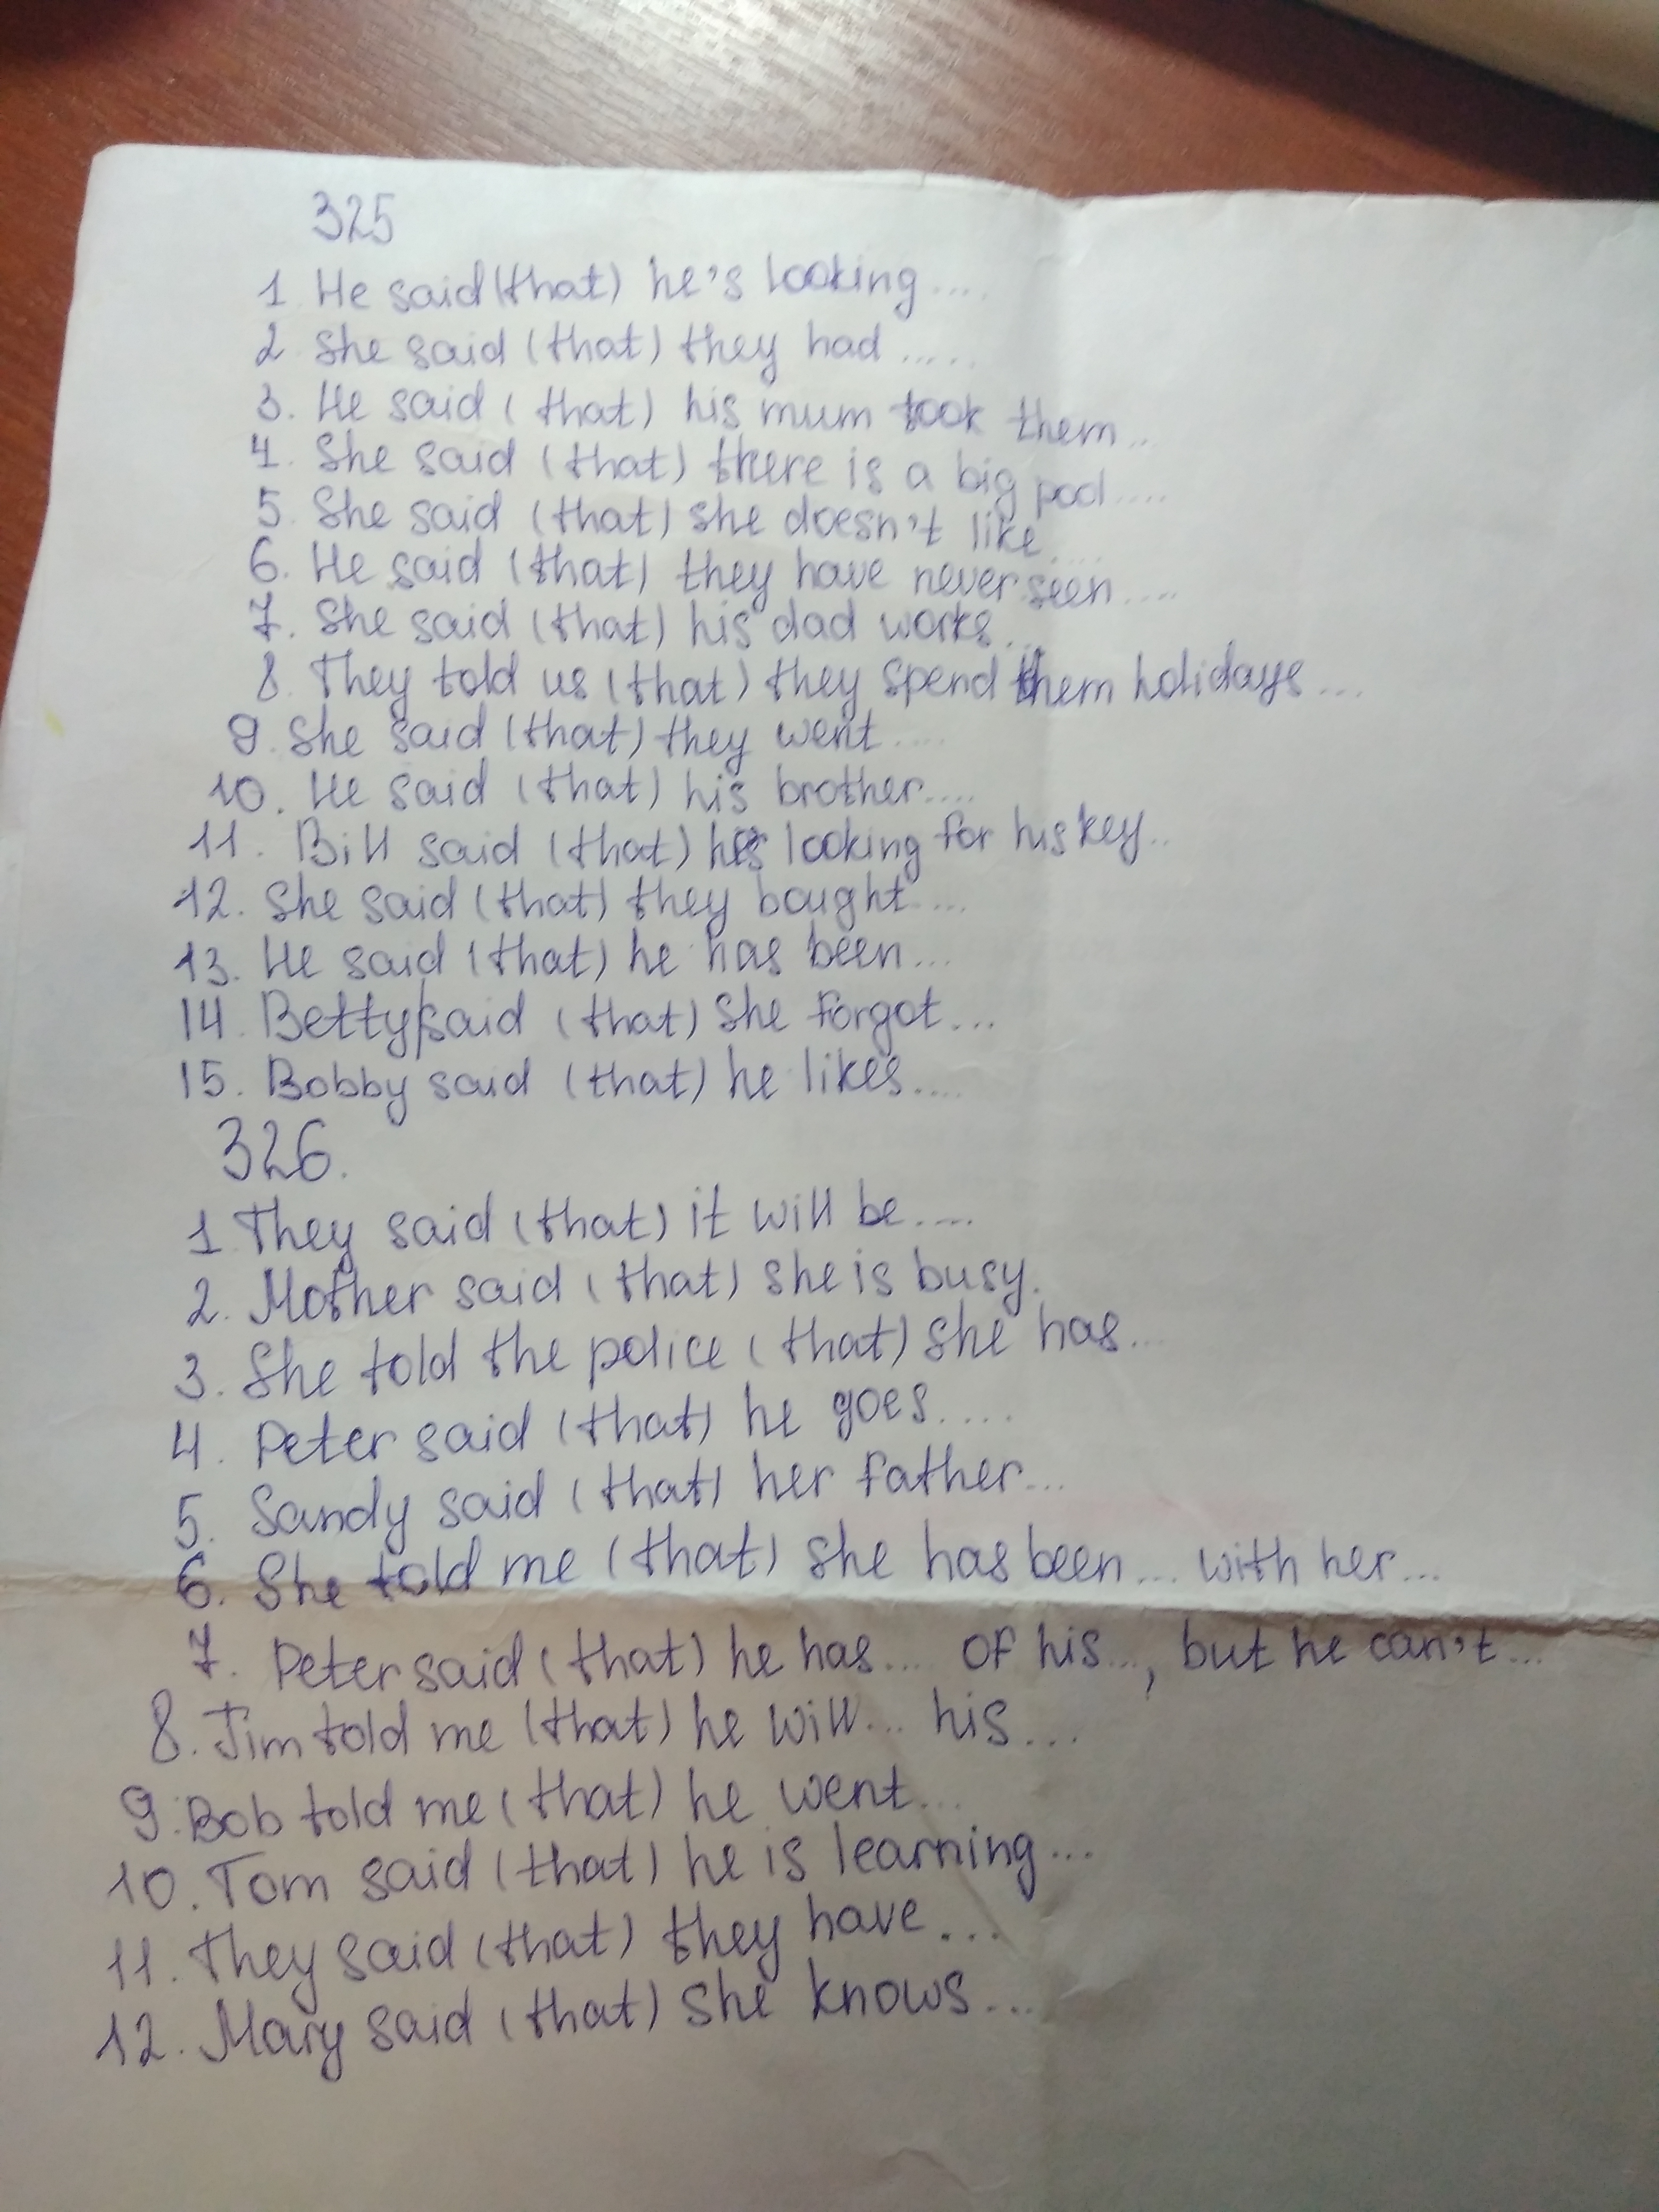 325
1. He said (that) he's looking....
2. She said (that) they had.....
3. He said (that) his mum took them..
4. She said (that) there is a big pool....
5. She said (that) she doesn't like....
6. He said (that) they have never seen....
7. She said (that) his dad works...
8. They told us (that) they spend them holidays...
9. She said (that) they went....
10. He said (that) his brother....
11. Bill said (that) he's looking for his key..
12. She said (that) they bought....
13. He said (that) he has been...
14. Betty said (that) she forgot...
15. Bobby said (that) he likes....
326.
1 They said (that) it will be....
2. Mother said (that) she is busy.
3. She told the police (that) she has...
4. Peter said (that) he goes....
5. Sandy said (that) her father...
6. She told me (that) she has been... with her...
7. Peter said (that) he has.... of his..., but he can't...
8. Jim told me (that) he will... his...
9. Bob told me (that) he went...
10. Tom said (that) he is learning...
11. They said (that) they have...
12. Mary said (that) she knows...